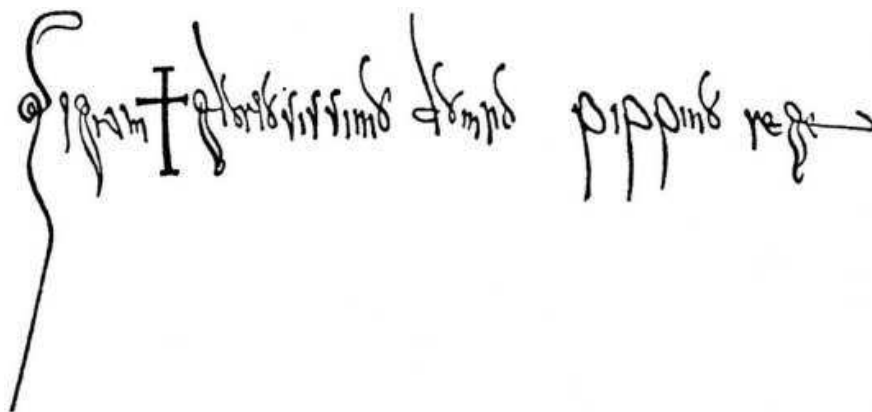 Signum + gloriosissimo domno pippino rege